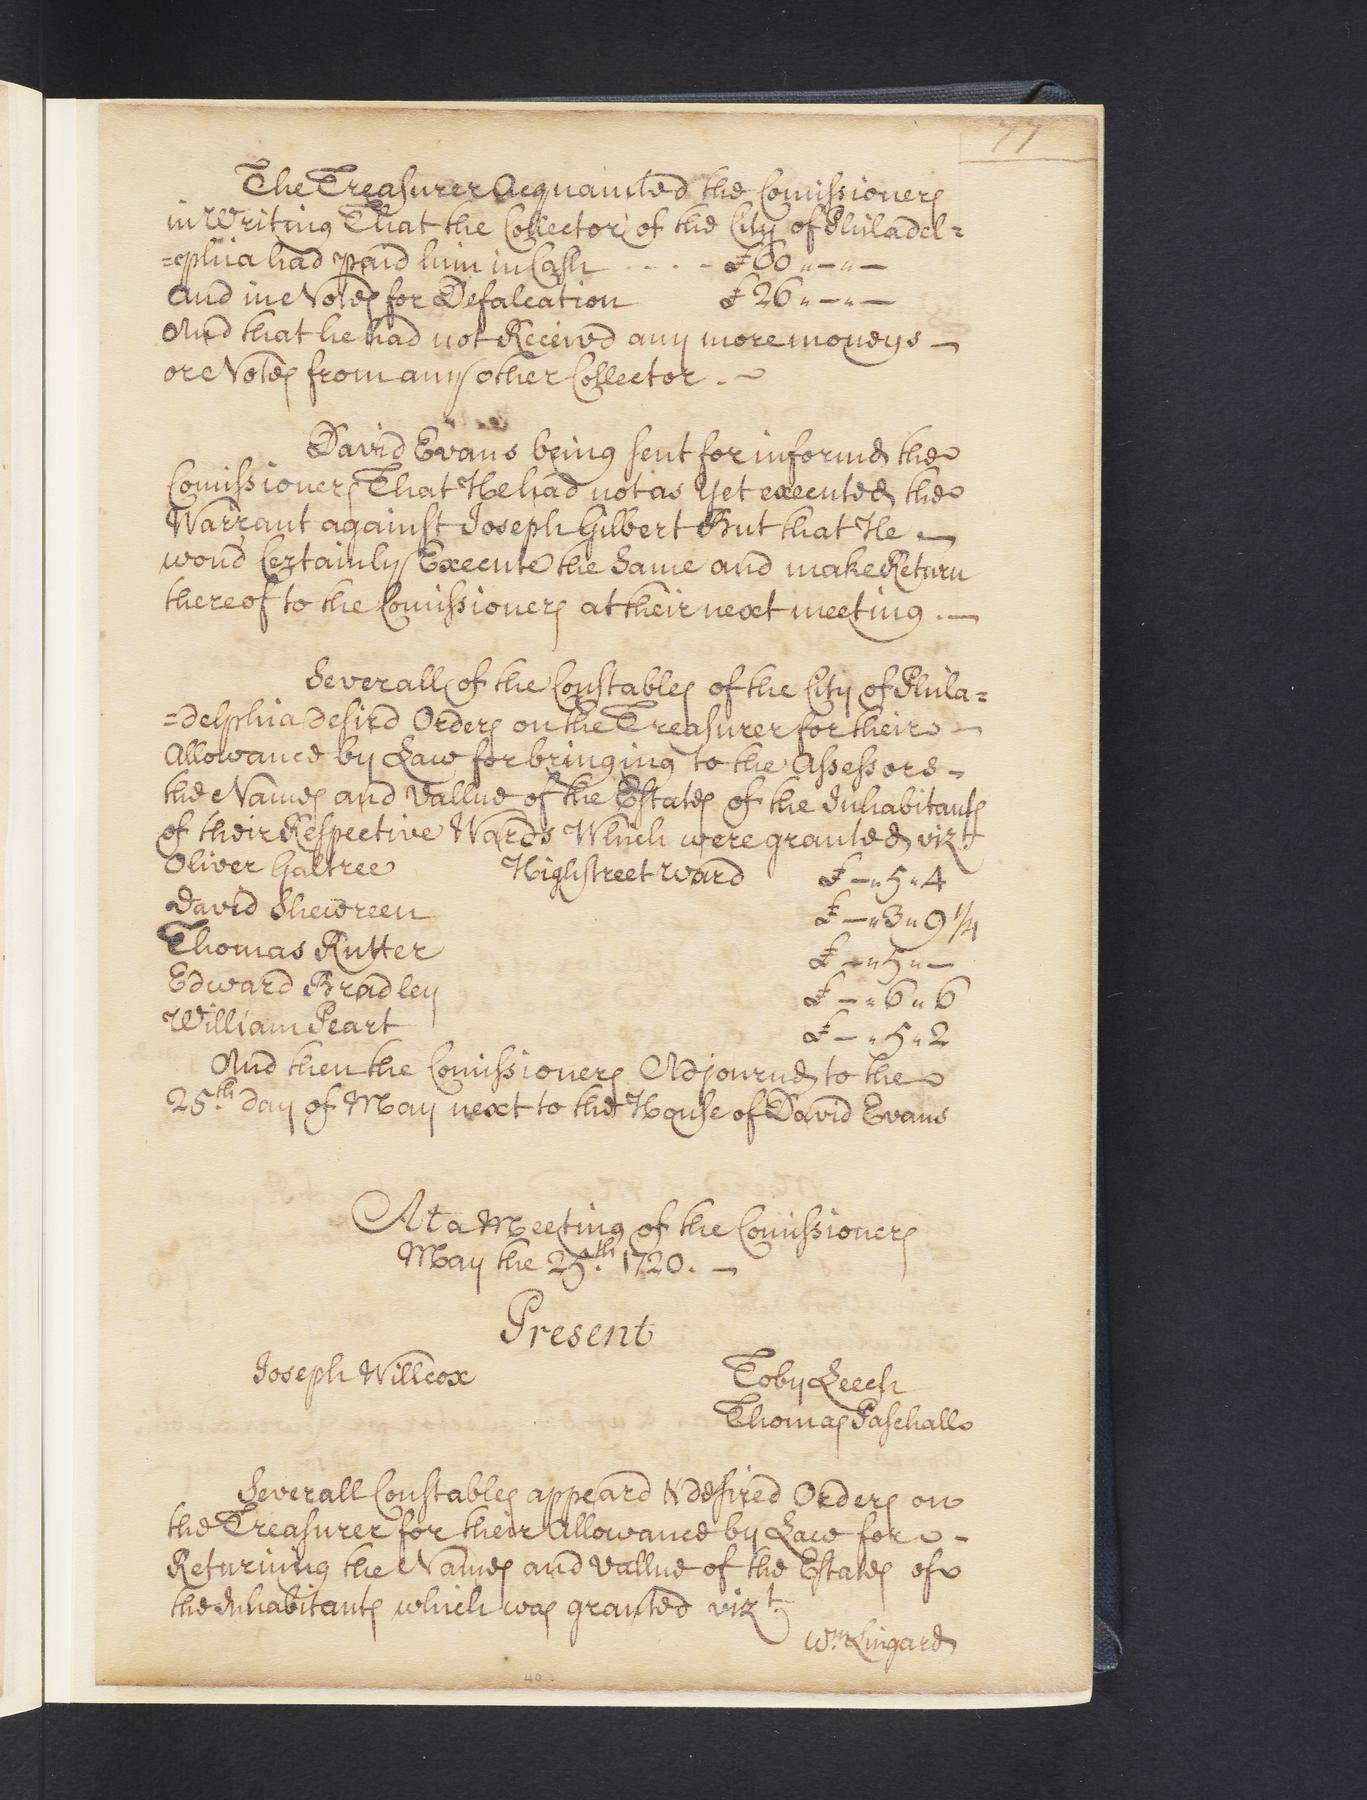 77
The Treasurer Acquainted the Comissioners
in Writing That the Collector of the City of Philadel=
=ephia had paid him in Cash . . . . - £60 „ — „ —
And in Notes for Defalcation £26 „ — „ —
And that he had not Receivd any more moneys —
or Notes from any other Collector . —
David Evans being sent for informd the
Comissioners That He had not as yet executed the
Warrant against Joseph Gilbert But that He —
woud Certainly Execute the Same and make Return
thereof to the Comissioners at their next meeting . —
Severall of the Constables of the City of Phila=
=delphia desird Orders on the Treasurer for their —
Allowance by Law for bringing to the Assessors —
the Names and Vallue of the Estates of the Inhabitants
of their Respective Wards Which were granted vizt
Oliver Galtree Highstreet Ward £ — „ 5 „ 4
David Shewreen £ — „ 3 „ 9 1/4
Thomas Rutter £ — „ 5 „ —
Edward Bradley £ — „ 6 „ 6
William Peart £ — „ 5 „ 2
And then the Comissioners Adjournd to the
25th day of May next to the House of David Evans
At a Meeting of the Comissioners
May the 25th 1720 . —
Present
Joseph Willcox Toby Leech
Thomas Paschall
Severall Constables appeard & desired Orders on
the Treasurer for their Allowance by Law for —
Returning the Names and Vallue of the Estates of
the Inhabitants which was granted vizt
Wm Lingard
40